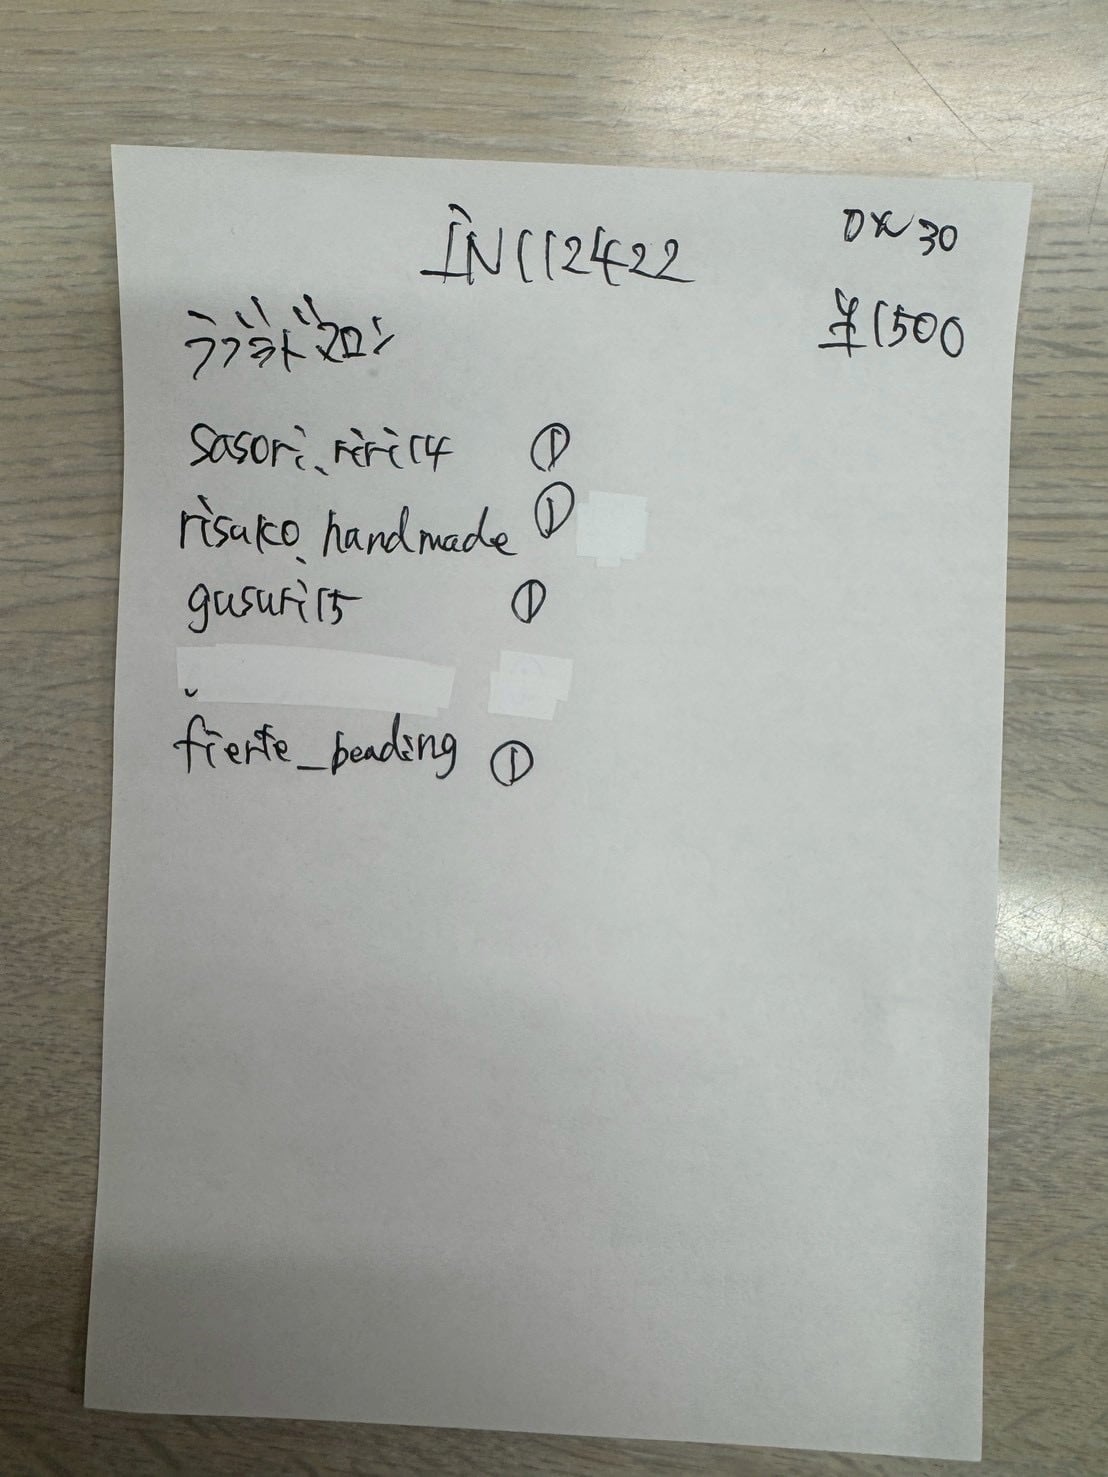 IN112422
0x30
¥1500
ラブラドメロン
sasori_riri14 ①
risako_handmade ①
gusuri15 ①
fierte_beading ①